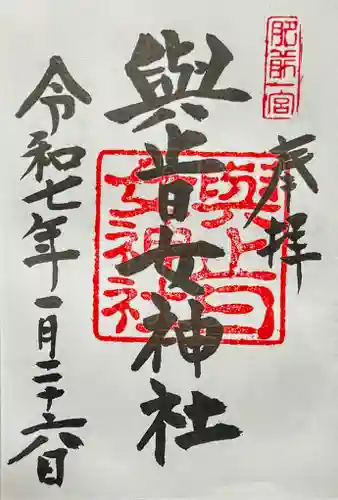 肥前一宮
奉拝
與止日女神社
與止日女神社
令和七年一月二十六日